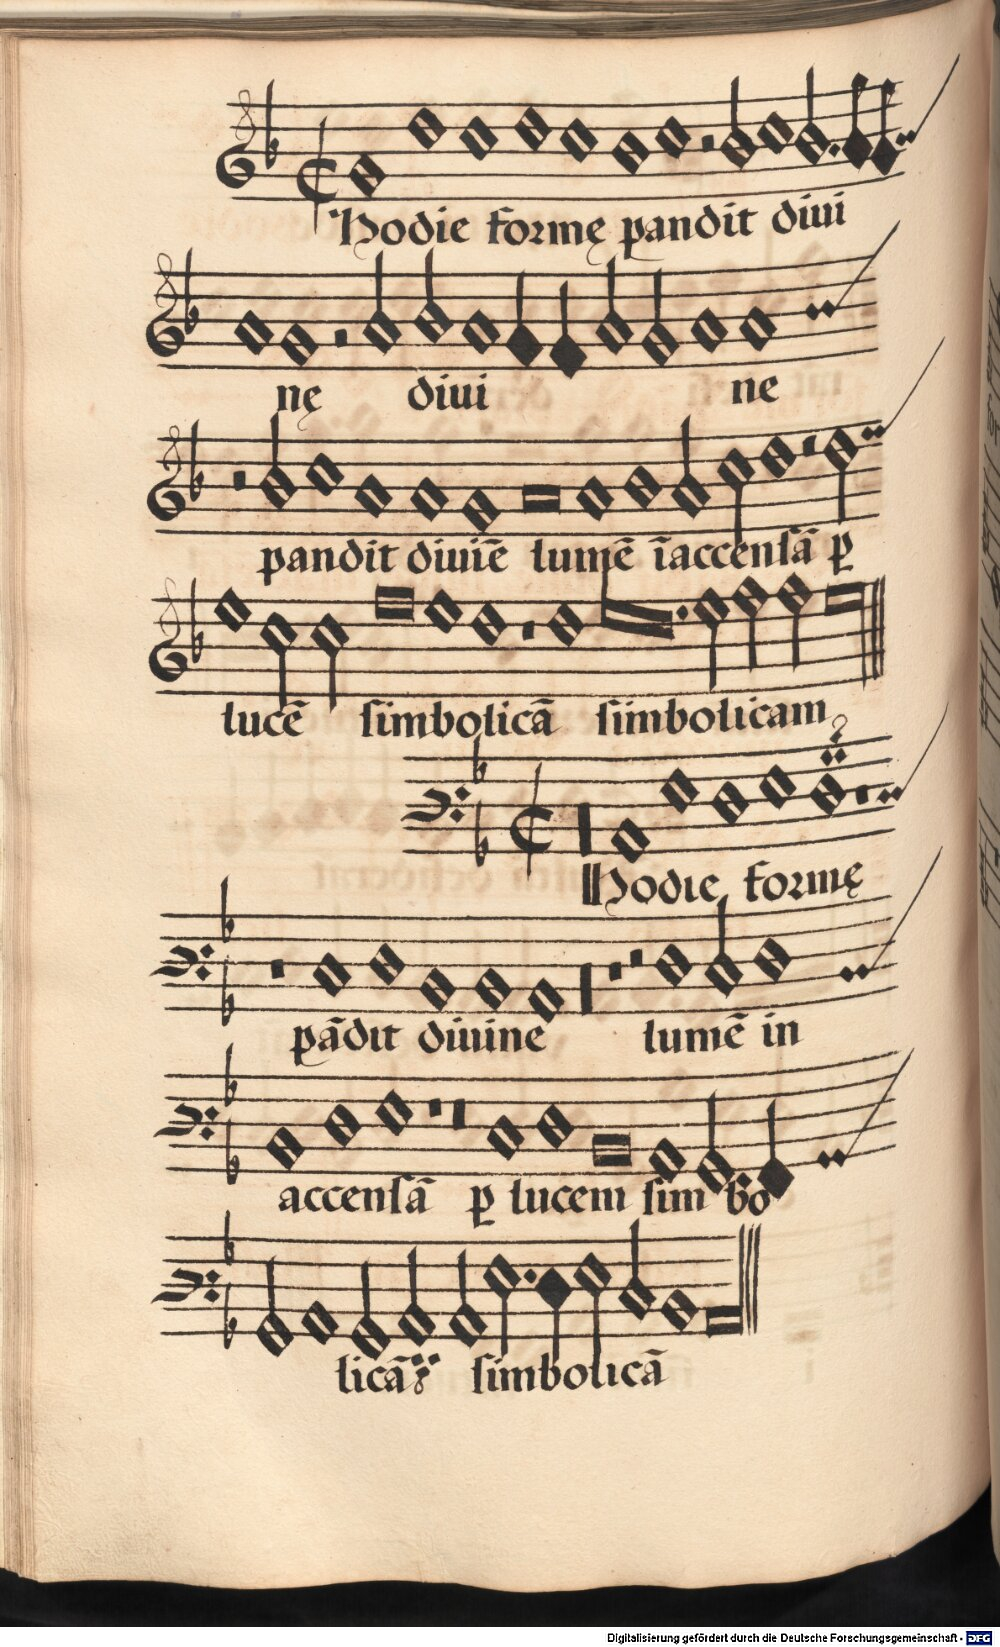 Hodie formę pandit diui
nę diui ne
pandit diuiē lumē īaccensā ꝑ
lucē simbolicā simbolicam
Hodie formę
pādit diuine lumē in
accensā ꝑ lucem sim bo
licā simbolicā
Digitalisierung gefördert durch die Deutsche Forschungsgemeinschaft - DFG